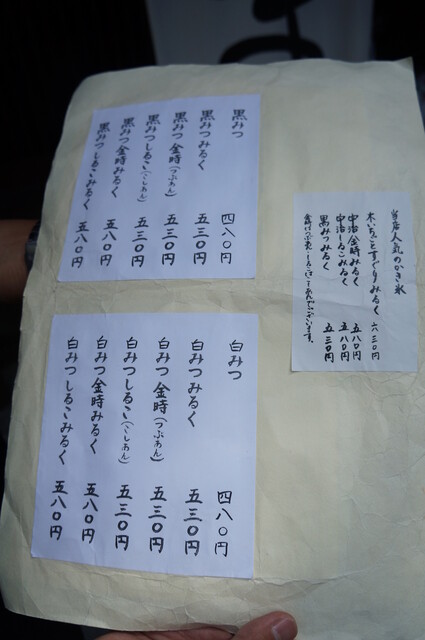 当店人気のかき氷
木いちごとすぐりみるく 六三〇円
宇治金時みるく 五八〇円
宇治しるこみるく 五八〇円
黒みつみるく 五三〇円
金時はつぶあん、しるこはこしあんでございます。
黒みつ 四八〇円
黒みつみるく 五三〇円
黒みつ金時(つぶあん) 五三〇円
黒みつしるこ(こしあん) 五三〇円
黒みつ金時みるく 五八〇円
黒みつしるこみるく 五八〇円
白みつ 四八〇円
白みつみるく 五三〇円
白みつ金時(つぶあん) 五三〇円
白みつしるこ(こしあん) 五三〇円
白みつ金時みるく 五八〇円
白みつしるこみるく 五八〇円